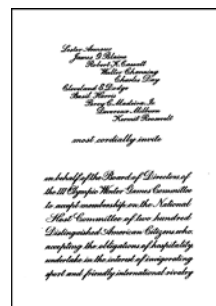 Lester Armour
James G Blaine
Robert K. Cassatt
Walter Channing
Charles Day
Cleveland E. Dodge
Basil Harris
Percy C. Madeira, Jr.
Devereux Milburn
Kermit Roosevelt
most cordially invite
on behalf of the Board of Directors of
the III Olympic Winter Games Committee
to accept membership on the National
Host Committee of two hundred
Distinguished American Citizens who
accepting the obligations of hospitality
undertake in the interest of invigorating
sport and friendly international rivalry